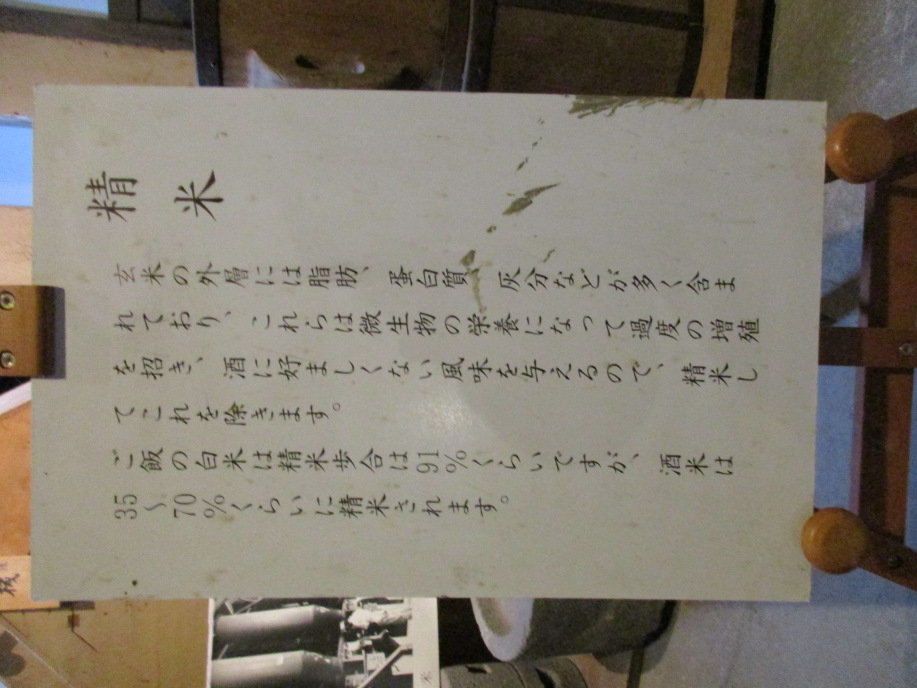 精米
玄米の外層には脂肪、蛋白質、灰分などが多く含ま
れており、これらは微生物の栄養になって過度の増殖
を招き、酒に好ましくない風味を与えるので、精米し
てこれを除きます。
ご飯の白米は精米歩合は91%くらいですが、酒米は
35〜70%くらいに精米されます。
米